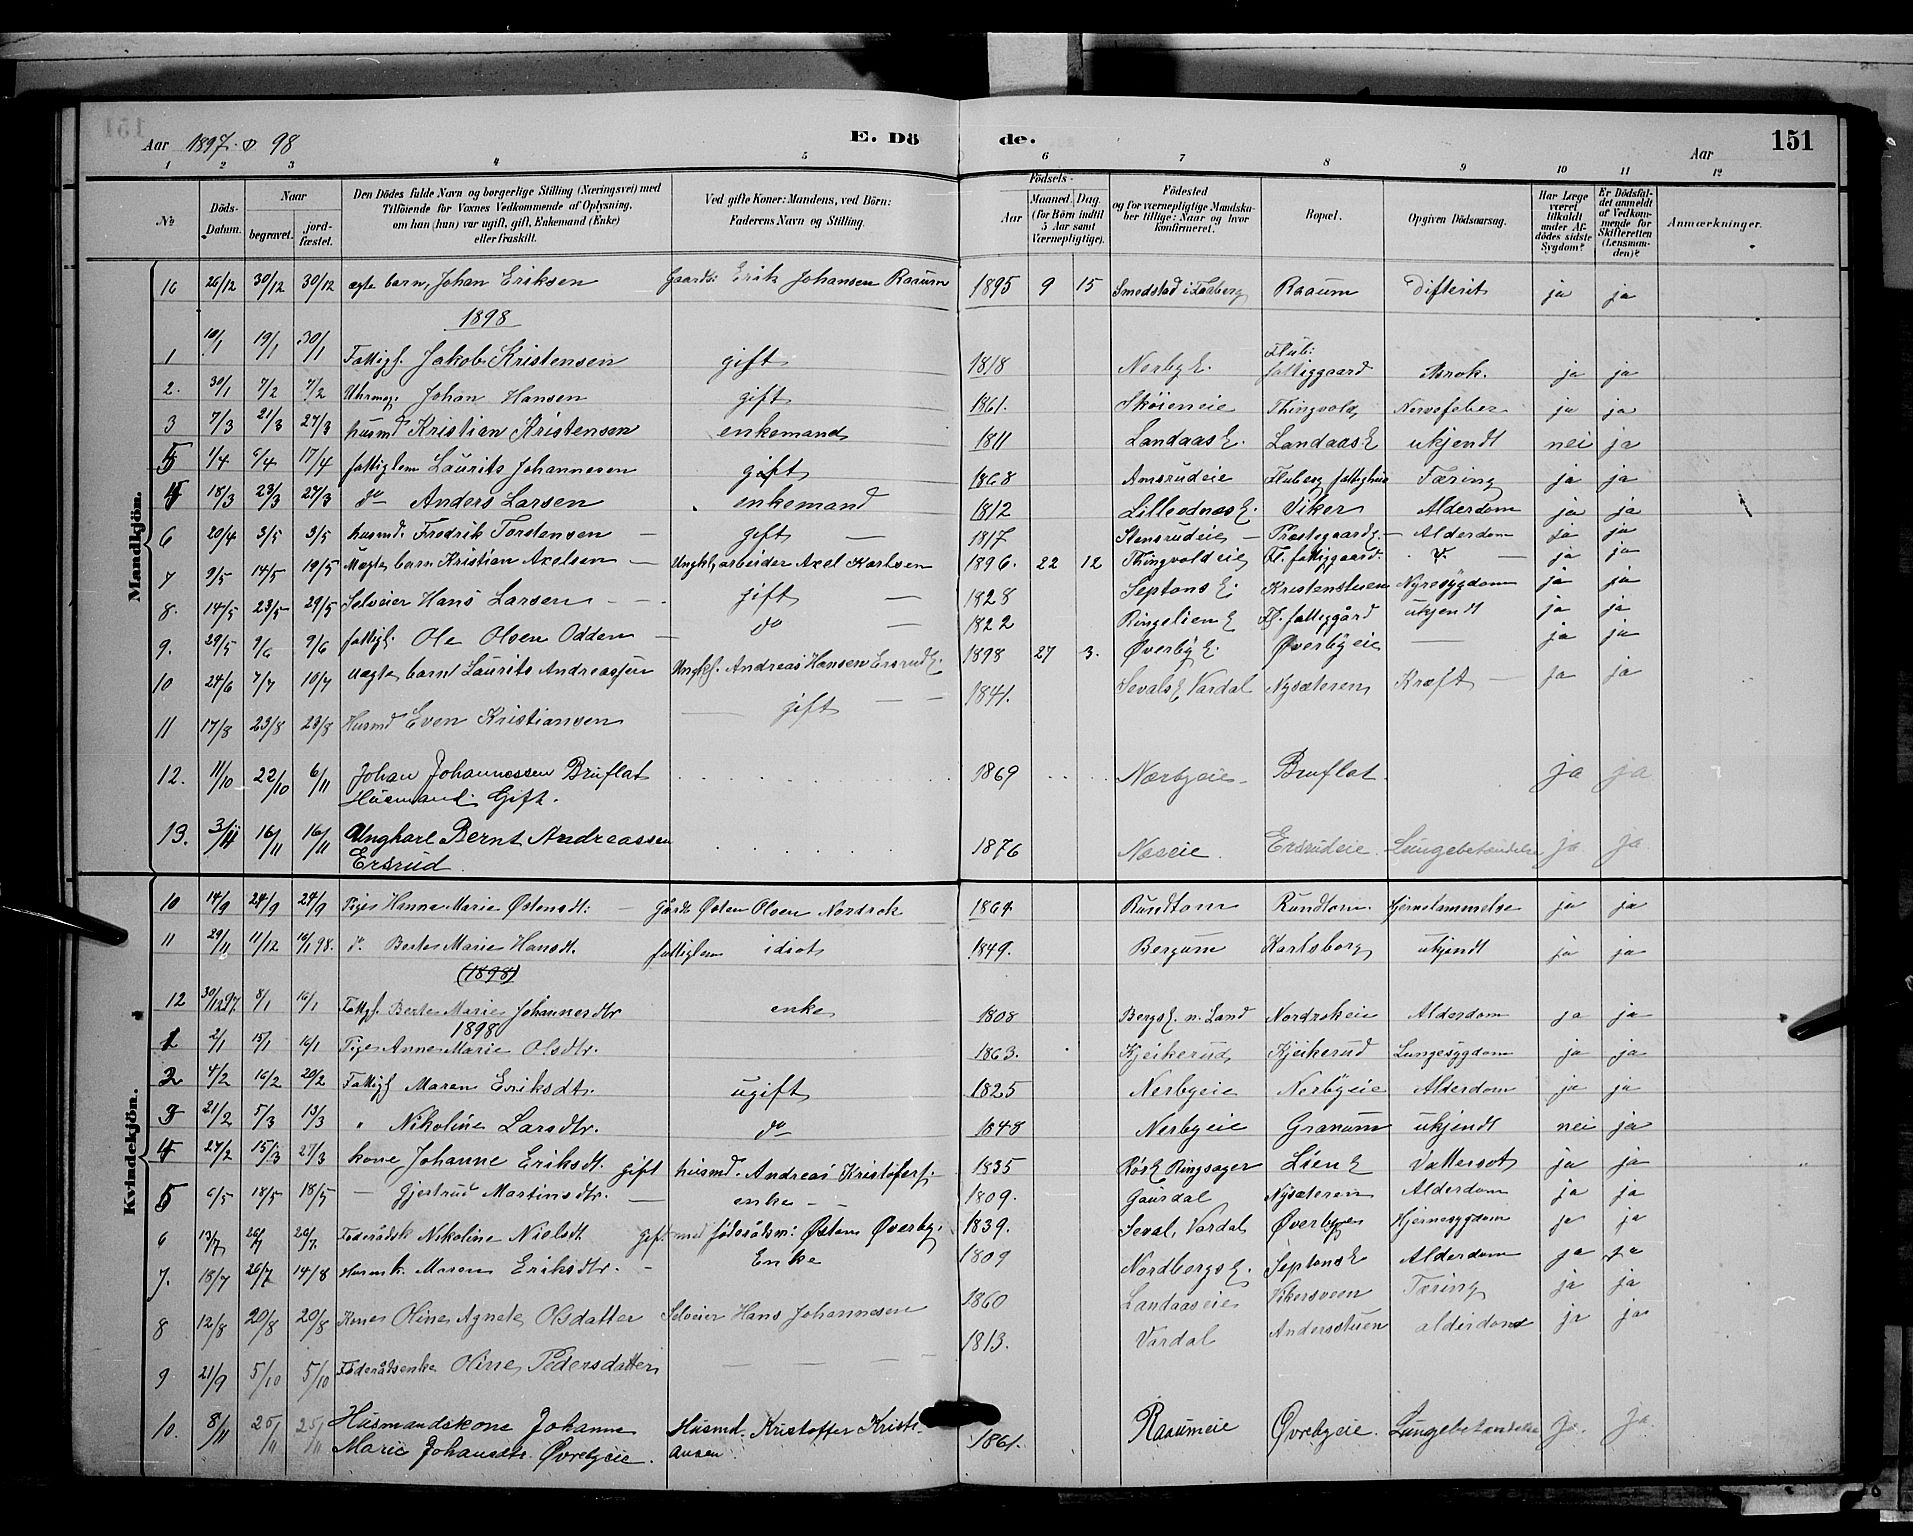 Aar 1897. & 98 E. Dö de. Aar 151
1 2 3 4 5 6 7 8 9 10 11 12
№ Döds-Datum. Naar begravet. jord-fæstet. Den Dödes fulde Navn og borgerlige Stilling (Næringsvei) med Tilföiende for Voxnes Vedkommende af Oplysning, om han (hun) var ugift, gift, Enkemand (Enke) eller fraskilt. Ved gifte Koner: Mandens, ved Börn: Faderens Navn og Stilling. Födsels- Aar Maaned. Dag. (for Börn indtil 5 Aar samt Værnepligtige). Födested og for værnepligtige Mandskaber tillige: Naar og hvor konfirmeret. Bopæl. Opgiven Dödsaarsag. Har Læge været tilkaldt under Afdödes sidste Sygdom? Er Dödsfaldet anmeldt af Vedkommende for Skifteretten (Lensmanden)? Anmærkninger.
Mandkjön.
10 26/12 30/12 30/12 ægte barn, Johan Eriksen Gaardb. Erik Johansen Raaum 1895 9 15 Smedstad i Faaberg Raaum Difterit ja ja
1898
1 10/1 19/1 30/1 Fattigl. Jakob Kristensen gift 1818 Nerby E. Flub: fattiggaard Brok. ja ja
2. 30/1 7/2 7/2 Uhrmag. Johan Hansen gift 1861. Skøieneie Thingvold, Nervefeber ja ja
3 7/3 21/3 27/3 husmd Kristian Kristensen enkemand 1811 Landaas E. Landaas E ukjendt nei ja
5 1/4 6/4 17/4 fattiglem Laurits Johannesen gift 1868 Amsrudeie Fluberg fattighus Tæring ja ja
4 18/3 23/3 27/3 do Anders Larsen enkemand 1812 Lilleodnæs E. Viker Alderdom ja ja
6 20/4 3/5 3/5 husmd. Fredrik Torstensen gift 1817 Stensrudeie Præstegaard E. Alderdom ja ja
7 9/5 14/5 19/5 Uægte barn Kristian Axelsen Ungkl, arbeider Axel Karlsen 1896. 22 12 Thingvoldeie Fl. fattiggaard. ja ja
8. 14/5 23/5 29/5 Selveier Hans Larsen gift 1828 Septons E. Kristenstuen Nyresygdom ja ja
9. 29/5 9/6 9/6 fattigl. Ole Olsen Odden do 1822 Ringelien E Fl. fattiggård ukjendt ja ja
10 24/6 7/7 10/7 Uægte barn Laurits Andreassen Ungkl. Andreas Hansen Ersrud E. 1898 27 3. Øverby E. Øverbyeie ja ja
11 17/8 23/8 23/8 Husmd Even Kristiansen gift 1841. Sevals E, Vardal Nysæteren Kræft ja ja
12. 11/10 22/10 6/11 Johan Johannessen Bruflat 1869 Nærbyeie Bruflat ja ja
Husmand. Gift.
13. 3/11 16/11 16/11 Ungkarl Bernt Andreassen 1876 Næseie. Ersrudeie. Lungebetændelse ja ja
Ersrud.
Kvindekjön.
10 14/9 24/9 24/9 Pige Hanna Marie Østensdt: Gårdb Østen Olsen Nordrok 1864 Rundtom Rundtom Hjernelammelse ja ja
11 29/11 11/12 16/1 98. do Berte Marie Hansdt. fattiglem idiot 1849. Bergum Karlsborg ukjendt ja ja
(1898)
12 30/12 97. 8/1 16/1 Fattigl. Berte Marie Johannesdtr enke 1808 Bergs E. n. Land Nordrokeie Alderdom ja ja
1898
1 2/1 15/1 16/1 Pige Anne Marie Olsdtr. 1863. Kjeikerud Kjeikerud Lungesygdom ja ja
2 4/2 16/2 20/2 Fattigl Maren Eriksdt. ugift 1825 Nerbyeie Nerbyeie Alderdom ja ja
3 21/2 5/3 13/3 " Nikoline Larsdtr. do 1848 Nerbyeie Granum ukjendt nei ja
4 27/2 15/3 27/3 kone Johanne Eriksdt. gift husmd. Andreas Kristofers. 1835 Rös E Ringsager Lien E Vattersot ja ja
5 6/5 18/5 18/5 — Gjertrud Martinsdtr. enke 1809. Gausdal Nysæteren Alderdom ja ja
6 13/7 20/7 20/7. Föderådsk Nikoline Nielsdt gift med föderådsm: Østen Øverby. 1839. Seval, Vardal Øverbyeie Hjernesygdom ja ja
7. 18/7 26/7 14/8 Husmk. Maren Eriksdtr. Enke 1809 Nordbergs E. Septons E Alderdom ja ja
8 12/8 20/8 20/8 Kone Oline Agnete Olsdatter Selveier Hans Johannesen 1860 Landaaseie Vikersveen Tæring ja ja
9 21/9 5/10 5/10 Föderådsenke Oline Pedersdatter 1813. Vardal Andersstuen alderdom ja ja
10. 8/11 25/11 25/11 Husmandskone Johanne Husmd. Kristoffer Kristi- 1861. Raaumeie Øvrebyeie. Lungebetændelse ja. ja.
Marie Johansdtr. Øvrebyeie. ansen.